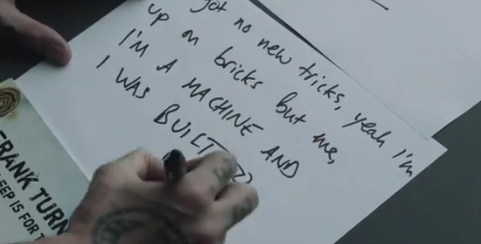 got no new tricks, yeah I'm
up on bricks but me,
I'M A MACHINE AND
I WAS BUILT TO
FRANK TURN
EEP IS FOR T